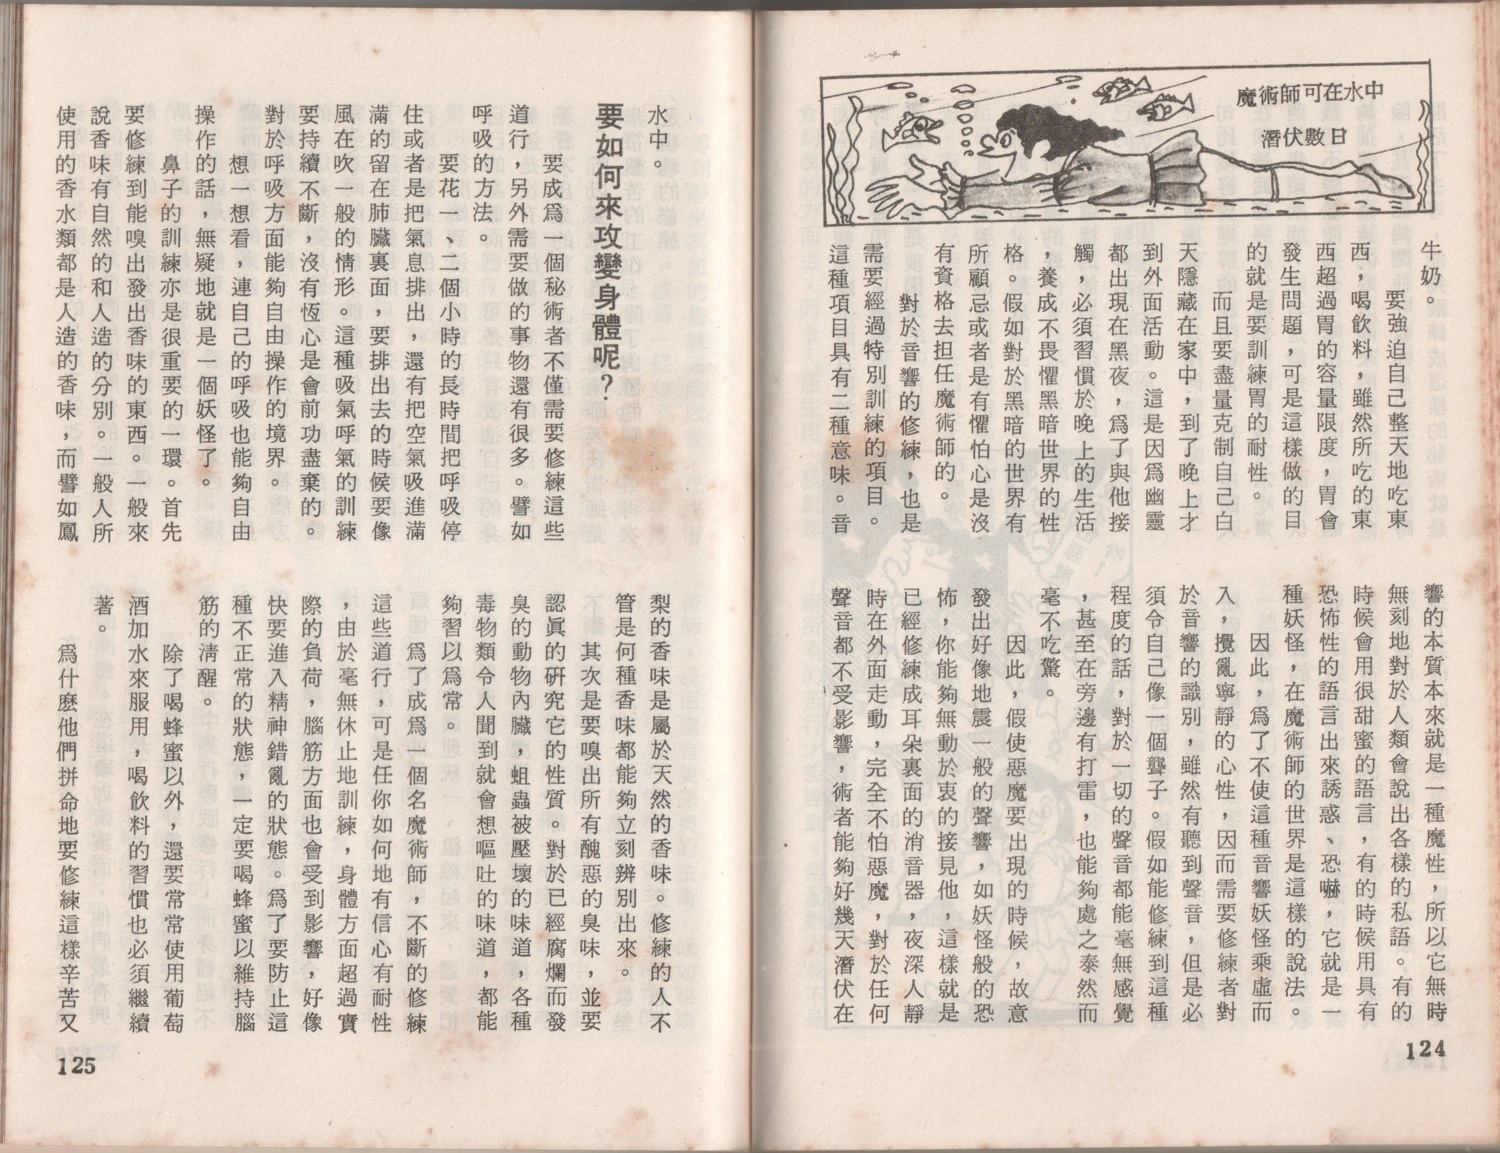 魔術師可在水中
潛伏數日
牛奶。
要強迫自己整天地吃東
西，喝飲料，雖然所吃的東
西超過胃的容量限度，胃會
發生問題，可是這樣做的目
的就是要訓練胃的耐性。
而且要盡量克制自己白
天隱藏在家中，到了晚上才
到外面活動。這是因爲幽靈
都出現在黑夜，爲了與他接
觸，必須習慣於晚上的生活
，養成不畏懼黑暗世界的性
格。假如對於黑暗的世界有
所顧忌或者是有懼怕心是沒
有資格去担任魔術師的。
對於音響的修練，也是
需要經過特別訓練的項目。
這種項目具有二種意味。音
響的本質本來就是一種魔性，所以它無時
無刻地對於人類會說出各樣的私語。有的
時候會用很甜蜜的語言，有的時候用具有
恐怖性的語言出來誘惑、恐嚇，它就是一
種妖怪，在魔術師的世界是這樣的說法。
因此，爲了不使這種音響妖怪乘虛而
入，攪亂寧靜的心性，因而需要修練者對
於音響的識別，雖然有聽到聲音，但是必
須令自己像一個聾子。假如能修練到這種
程度的話，對於一切的聲音都能毫無感覺
，甚至在旁邊有打雷，也能夠處之泰然而
毫不吃驚。
因此，假使惡魔要出現的時候，故意
發出好像地震一般的聲響，如妖怪般的恐
怖，你能夠無動於衷的接見他，這樣就是
已經修練成耳朵裏面的消音器，夜深人靜
時在外面走動，完全不怕惡魔，對於任何
聲音都不受影響，術者能夠好幾天潛伏在
124
水中。
要如何來攻變身體呢？
要成爲一個秘術者不僅需要修練這些
道行，另外需要做的事物還有很多。譬如
呼吸的方法。
要花一、二個小時的長時間把呼吸停
住或者是把氣息排出，還有把空氣吸進滿
滿的留在肺臟裏面，要排出去的時候要像
風在吹一般的情形。這種吸氣呼氣的訓練
要持續不斷，沒有恆心是會前功盡棄的。
對於呼吸方面能夠自由操作的境界。
想一想看，連自己的呼吸也能夠自由
操作的話，無疑地就是一個妖怪了。
鼻子的訓練亦是很重要的一環。首先
要修練到能嗅出發出香味的東西。一般來
說香味有自然的和人造的分別。一般人所
使用的香水類都是人造的香味，而譬如鳳
梨的香味是屬於天然的香味。修練的人不
管是何種香味都能夠立刻辨別出來。
其次是要嗅出所有醜惡的臭味，並要
認眞的硏究它的性質。對於已經腐爛而發
臭的動物內臟，蛆蟲被壓壞的味道，各種
毒物類令人聞到就會想嘔吐的味道，都能
夠習以爲常。
爲了成爲一個名魔術師，不斷的修練
這些道行，可是任你如何地有信心有耐性
，由於毫無休止地訓練，身體方面超過實
際的負荷，腦筋方面也會受到影響，好像
快要進入精神錯亂的狀態。爲了要防止這
種不正常的狀態，一定要喝蜂蜜以維持腦
筋的淸醒。
除了喝蜂蜜以外，還要常常使用葡萄
酒加水來服用，喝飲料的習慣也必須繼續
著。
爲什麼他們拼命地要修練這樣辛苦又
125